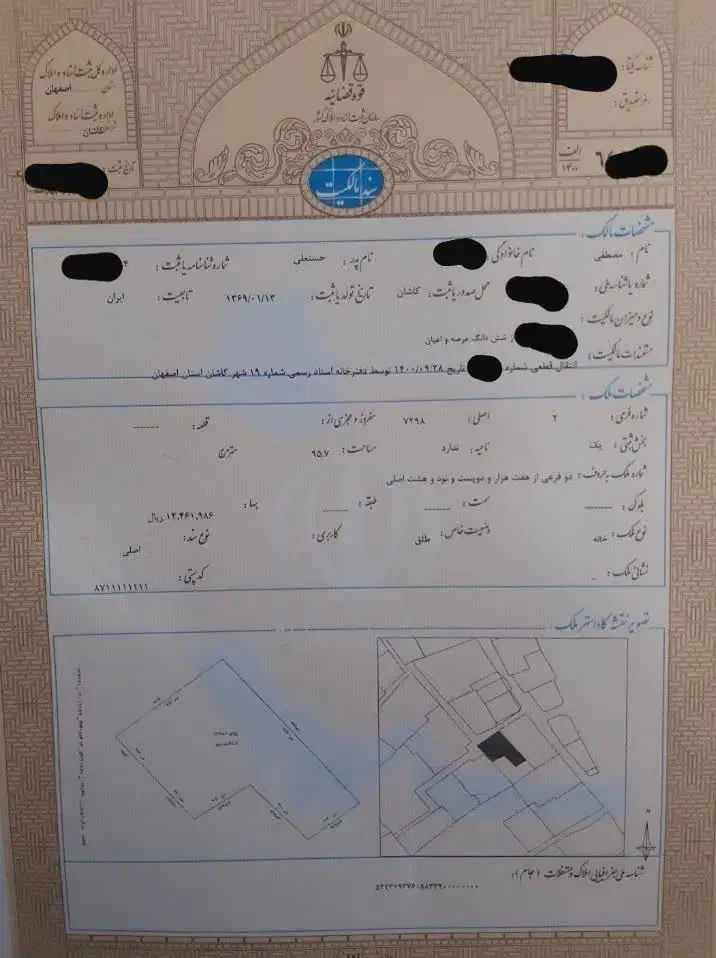 اداره کل ثبت اسناد و املاک
استان اصفهان
اداره ثبت اسناد و املاک
کاشان
تاریخ ثبت :
قوه قضائیه
سازمان ثبت اسناد و املاک کشور
سند مالکیت
شناسه یکتا :
رمز تصدیق :
الف
۱۴۰۰
مشخصات مالک :
نام : مصطفی نام خانوادگی : نام پدر : حسنعلی شماره شناسنامه یا ثبت :
شماره یا شناسه ملی : محل صدور یا ثبت : کاشان تاریخ تولد یا ثبت : ۱۳۶۹/۰۱/۱۳ تابعیت : ایران
نوع و میزان مالکیت : از شش دانگ عرصه و اعیان
مستندات مالکیت : انتقال قطعی شماره تاریخ ۱۴۰۰/۰۹/۲۸ توسط دفترخانه اسناد رسمی شماره ۱۹ شهر کاشان استان اصفهان
مشخصات ملک :
شماره فرعی : ۲ اصلی : ۷۲۹۸ مفروز و مجزی از : قطعه : ------
بخش ثبتی : یک ناحیه : ندارد مساحت : ۹۵.۷ مترمربع
شماره ملک به حروف : دو فرعی از هفت هزار و دویست و نود و هشت اصلی
بلوک : ------ سمت : ------ طبقه : ------ بها : ۱۴,۴۶۱,۹۸۶ ریال
نوع ملک : خانه وضعیت خاص : طلق کاربری : نوع سند : اصلی
نشانی ملک : - کد پستی : ۸۷۱۱۱۱۱۱۱۱
تصویر نقشه کاداستر ملک :
N
شناسه ملی جغرافیایی املاک و مستغلات (جام) :